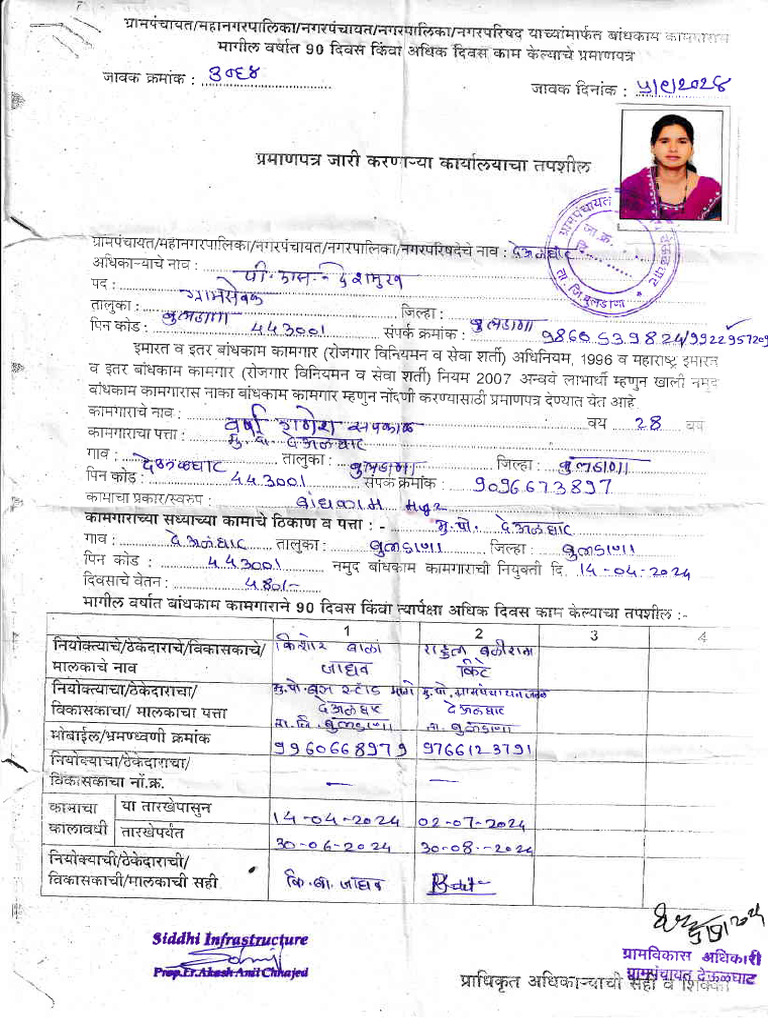 ग्रामपंचायत/महानगरपालिका/नगरपंचायत/नगरपालिका/नगरपरिषद याच्यांमार्फत बांधकाम कामगारास
मागील वर्षात 90 दिवस किंवा अधिक दिवस काम केल्याचे प्रमाणपत्र
जावक क्रमांक : ३०६४ जावक दिनांक : ५/९/२०२४
प्रमाणपत्र जारी करणाऱ्या कार्यालयाचा तपशील
ग्रामपंचायत/महानगरपालिका/नगरपंचायत/नगरपालिका/नगरपरिषदेचे नाव : देऊळघाट
अधिकाऱ्याचे नाव : पी. एस. देशमुख
पद : ग्रामसेवक
तालुका : बुलडाणा जिल्हा : बुलडाणा
पिन कोड : 443001 संपर्क क्रमांक : 9860539824/9922957209
इमारत व इतर बांधकाम कामगार (रोजगार विनियमन व सेवा शर्ती) अधिनियम, 1996 व महाराष्ट्र इमारत
व इतर बांधकाम कामगार (रोजगार विनियमन व सेवा शर्ती) नियम 2007 अन्वये लाभार्थी म्हणुन खाली नमुद
बांधकाम कामगारास नाका बांधकाम कामगार म्हणुन नोंदणी करण्यासाठी प्रमाणपत्र देण्यात येत आहे.
कामगाराचे नाव : वर्षा गणेश सपकाळ वय 28 वर्ष
कामगाराचा पत्ता : मु. पो. देऊळघाट
गाव : देऊळघाट तालुका : बुलडाणा जिल्हा : बुलडाणा
पिन कोड : 443001 संपर्क क्रमांक : 9096673897
कामाचा प्रकार/स्वरुप : बांधकाम मजुर
कामगाराच्या सध्याच्या कामाचे ठिकाण व पत्ता : - मु.पो. देऊळघाट
गाव : देऊळघाट तालुका : बुलडाणा जिल्हा : बुलडाणा
पिन कोड : 443001 नमुद बांधकाम कामगाराची नियुक्ती दि. 14-04-2024
दिवसाचे वेतन : 480/-
मागील वर्षात बांधकाम कामगाराने 90 दिवस किंवा त्यापेक्षा अधिक दिवस काम केल्याचा तपशील :-
1 2 3 4
नियोक्त्याचे/ठेकेदाराचे/विकासकाचे/ किशोर बाळा राहुल बळीराम
मालकाचे नाव जाधव किटे
नियोक्त्याचा/ठेकेदाराचा/ मु.पो. बस स्टॅंड मागे मु.पो. ग्रामपंचायत जवळ
विकासकाचा/ मालकाचा पत्ता देऊळघाट देऊळघाट
ता. जि. बुलडाणा ता. बुलडाणा
मोबाईल/भ्रमणध्वणी क्रमांक 9960668979 9766123791
नियोक्याचा/ठेकेदाराचा/
विकासकाचा नों.क्र. — —
कामाचा कालावधी या तारखेपासुन 14-04-2024 02-07-2024
तारखेपर्यंत 30-06-2024 30-08-2024
नियोक्याची/ठेकेदाराची/
विकासकाची/मालकाची सही कि.बा. जाधव
Siddhi Infrastructure
Prop.Er.Akash Anil Chhajed
५/९/२०२४
ग्रामविकास अधिकारी
ग्रामपंचायत देऊळघाट
प्राधिकृत अधिकाऱ्याची सही व शिक्का